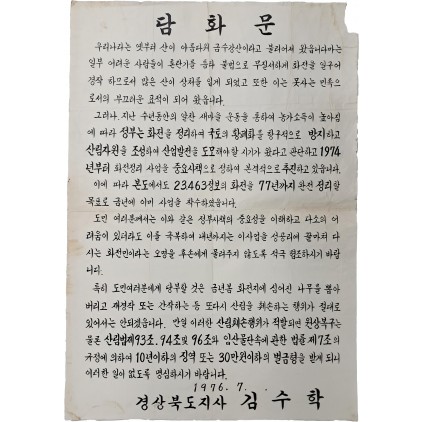 담화문
우리나라는 옛부터 산이 아름다워 금수강산이라고 불리어져 왔읍니다마는
일부 어려운 사람들이 혼란기를 틈타 불법으로 무질서하게 화전을 일구어
경작 하므로서 많은 산이 상처를 입게 되었고 또한 이는 못사는 민족으
로서의 부끄러운 표적이 되어 왔읍니다.
그러나, 지난 수년동안의 알찬 새마을 운동을 통하여 농가소득이 높아짐
에 따라 정부는 화전을 정리하여 국토의 황폐화를 항구적으로 방지하고
산림자원을 조성하여 산업발전을 도모해야할 시기가 왔다고 판단하고 1974
년부터 화전정리 사업을 중요시책으로 정하여 본격적으로 추진하고 있습니다.
이에 따라 본도에서도 23,463정보의 화전을 77년까지 완전 정리할
목표로 금년에 이미 사업을 착수하였습니다.
도민 여러분께서는 이와 같은 정부시책의 중요성을 이해하고 다소의 어
려움이 있더라도 이를 극복하여 내년까지는 이사업을 성공리에 끝마쳐 다
시는 화전민이라는 오명을 후손에게 물려주지 않도록 적극 협조하시기 바랍
니다.
특히 도민여러분에게 당부할 것은 금년봄 화전지에 심어진 나무를 뽑아
버리고 재경작 또는 간작하는 등 또다시 산림을 훼손하는 행위가 절대로
있어서는 안되겠읍니다. 만일 이러한 산림훼손행위가 적발되면 원상복구는
물론 산림법제93조, 94조 및 96조와 임산물단속에 관한 법률 제7조의
규정에 의하여 10년이하의 징역 또는 30만원이하의 벌금형을 받게 되니
이러한 일이 없도록 명심하시기 바랍니다.
1976. 7.
경상북도지사 김수학